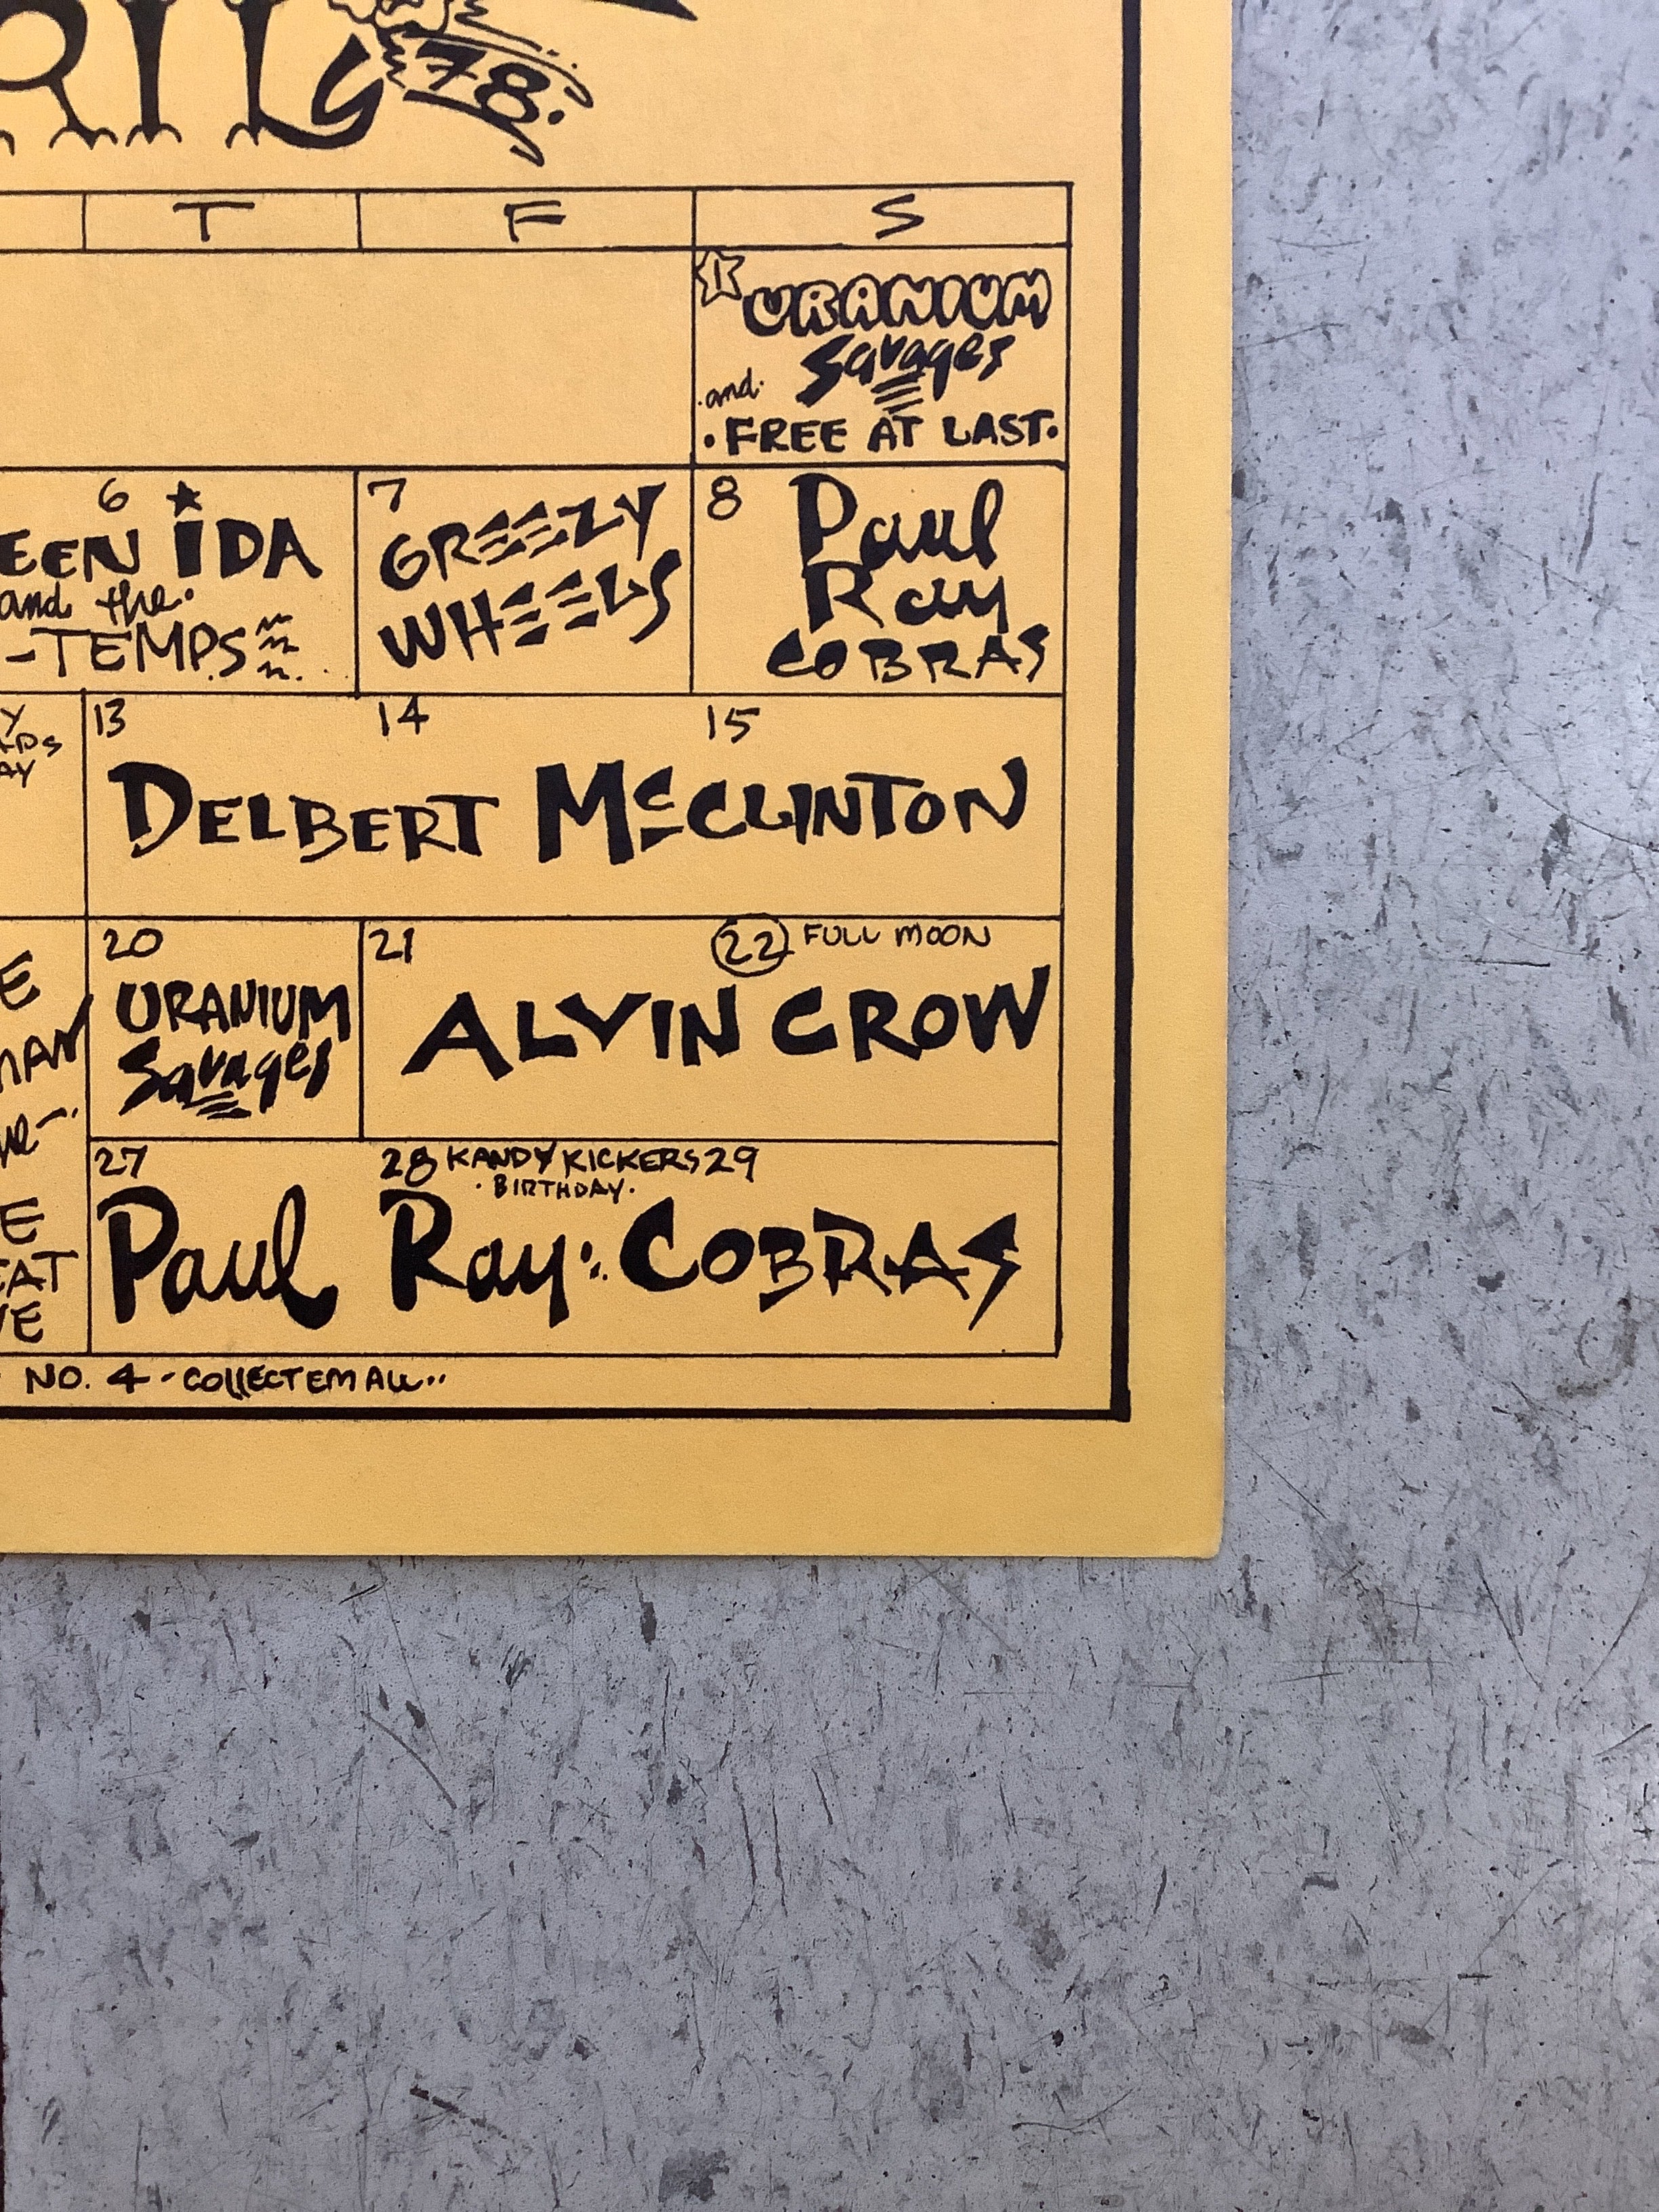 RIL
78.
T F S
1 URANIUM
Savages
and
FREE AT LAST.
6
EEN IDA
and the
-TEMPS
7
GREEZY
WHEELS
8 Paul
Ray
COBRAS
Y
AY
13 14 15
DELBERT McCLINTON
20
URANIUM
Savages
21 22 FULL MOON
ALVIN CROW
E
MAN
27 28 KANDY KICKERS 29
BIRTHDAY.
Paul Ray: COBRAS
E
EAT
VE
NO. 4 - COllECT EM ALL..